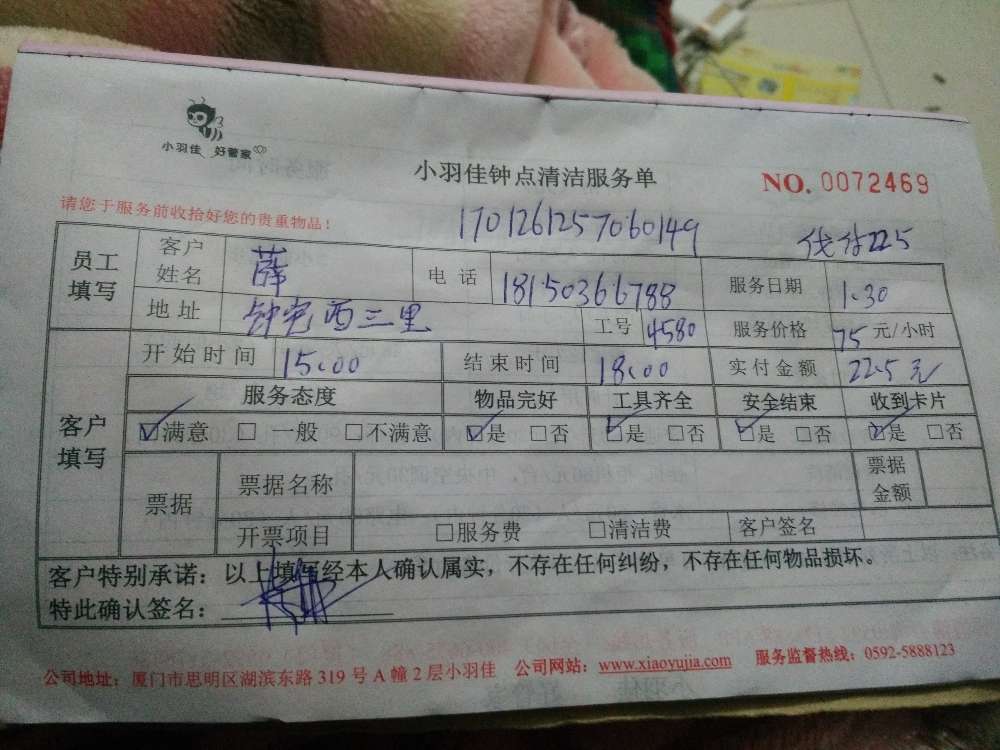 小羽佳 好管家
小羽佳钟点清洁服务单
NO. 0072469
请您于服务前收拾好您的贵重物品!
1701261257060149
代付225
员工填写 客户姓名 薛 电话 18150366788 服务日期 1.30
地址 钟宅西三里 工号 4580 服务价格 75 元/小时
客户填写 开始时间 15:00 结束时间 18:00 实付金额 225元
服务态度 物品完好 工具齐全 安全结束 收到卡片
☑满意 □一般 □不满意 ☑是 □否 ☑是 □否 ☑是 □否 ☑是 □否
票据 票据名称 票据金额
开票项目 □服务费 □清洁费 客户签名
客户特别承诺:以上填写经本人确认属实,不存在任何纠纷,不存在任何物品损坏。
特此确认签名:
公司地址:厦门市思明区湖滨东路 319 号 A 幢 2 层小羽佳 公司网站:www.xiaoyujia.com 服务监督热线:0592-5888123